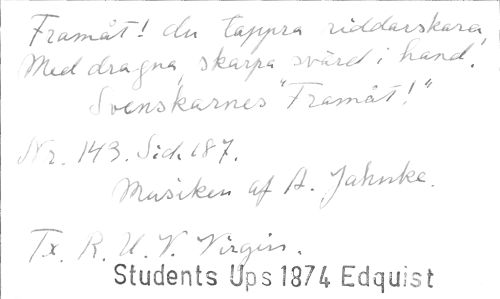 Framåt! du tappra riddarskara,
Med dragna, skarpa svärd i hand.
Svenskarnes "Framåt!"
Nr. 143. Sid. 187.
Musiken af A. Jahnke.
Tx. R. U. V. Virgin.
Students Ups 1874 Edquist